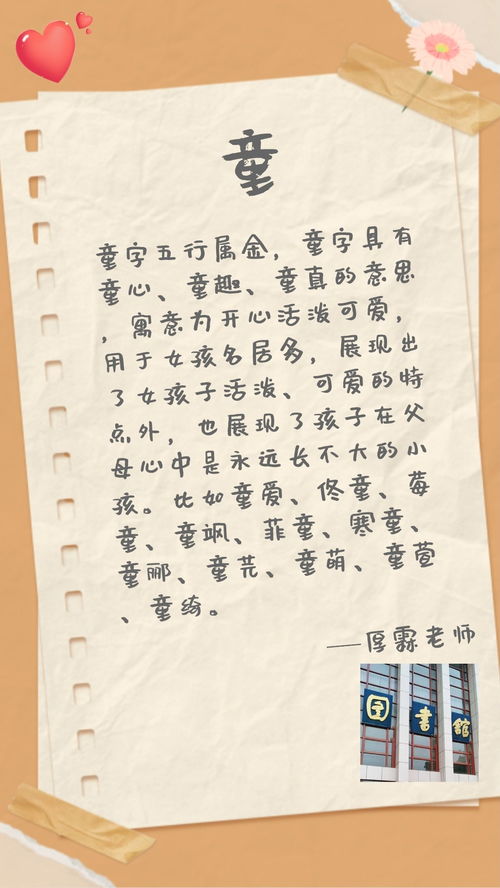 童
童字五行属金，童字具有
童心、童趣、童真的意思
，寓意为开心活泼可爱，
用于女孩名居多，展现出
了女孩子活泼、可爱的特
点外，也展现了孩子在父
母心中是永远长不大的小
孩。比如童爱、佟童、莓
童、童飒、菲童、寒童、
童郦、童芫、童萌、童萱
、童绮。
——厚霖老师
图书馆